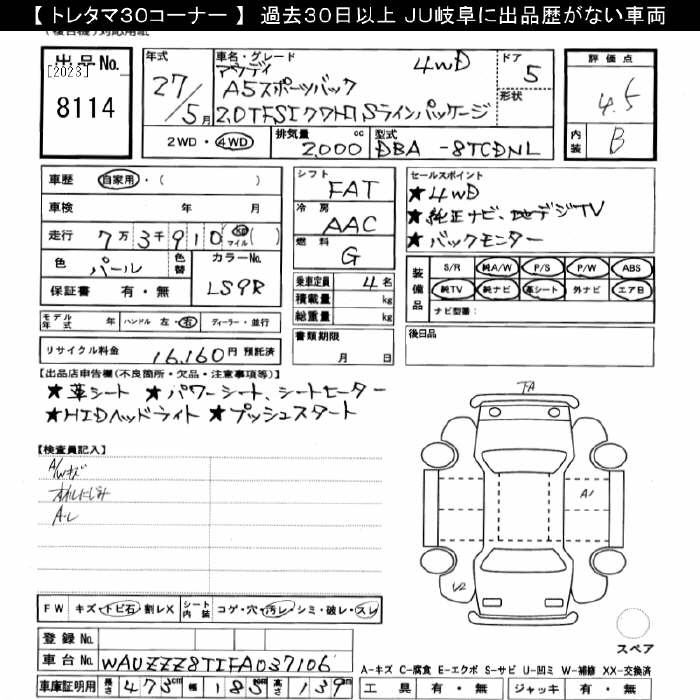 【 トレタマ30コーナー 】 過去30日以上 JU岐阜に出品歴がない車両
出品No.
[2023]
8114
年式
27/5月
車名・グレード
アウディ 4WD
A5スポーツバック
2.0TFSIクワトロ Sラインパッケージ
ドア
5
形状
評価点
4.5
内装
B
2WD・4WD
排気量 2,000 cc
型式 DBA -8TCDNL
車歴 自家用・( )
車検 年 月
走行 7万3千910 km マイル( )
色 パール
色替
カラーNo.
LS9R
保証書 有・無
シフト
FAT
冷房
AAC
燃料
G
乗車定員 4名
積載量 kg
総重量 kg
書類期限
月 日
セールスポイント
★4WD
★純正ナビ、地デジTV
★バックモニター
装備品
S/R 純A/W P/S P/W ABS
純TV 純ナビ 革シート 外ナビ エアB
ナビ型番:
後日品
モデル年式 年 ハンドル 左・右 ディーラー・並行
リサイクル料金 16,160円 預託済
【出品店申告欄(不良箇所・欠品・注意事項等)】
★革シート ★パワーシート、シートヒーター
★HIDヘッドライト ★プッシュスタート
【検査員記入】
A/Wキズ
オイルにじみ
A-L
A1
U2
FW キズ・トビ石・割レX
シート内装 コゲ・穴・汚レ・シミ・破レ・スレ
スペア
登録No.
車台No. WAUZZZ8T1FA037106
A-キズ C-腐食 E-エクボ S-サビ U-凹ミ W-補修 XX-交換済
車庫証明用 長さ 473cm 幅 185cm 高さ 139cm
工具 有・無 ジャッキ 有・無